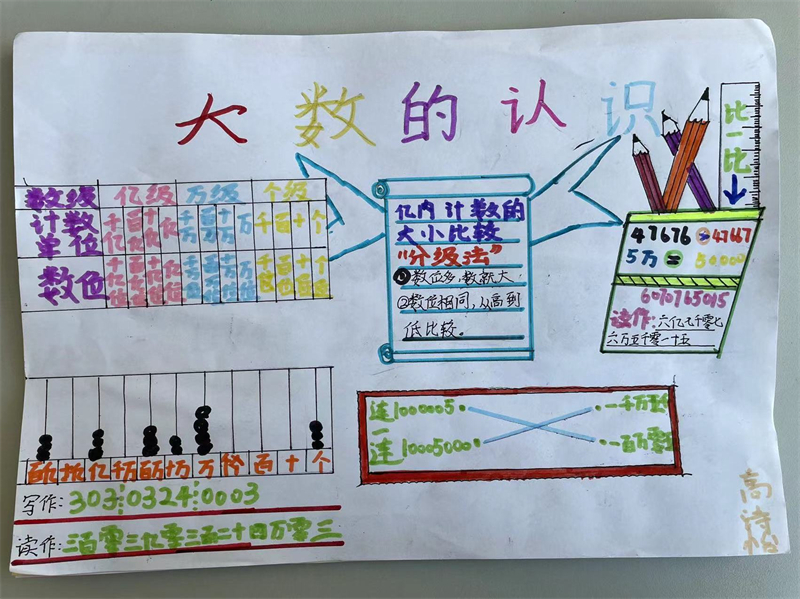 大数的认识
数级 亿级 万级 个级
计数单位 千亿 百亿 十亿 亿 千万 百万 十万 万 千 百 十 个
数位 千亿位 百亿位 十亿位 亿位 千万位 百万位 十万位 万位 千位 百位 十位 个位
亿内计数的
大小比较
"分级法"
①数位多,数就大.
②数位相同,从高到
低比较。
比一比
47676
5万 = 50000
读作:六亿七千零七
六万五千零一十五
百亿 十亿 亿 千万 百万 十万 万 千 百 十 个
写作:303:0324:0003
读作:三百零三亿零三百二十四万零三
连一连
1000005 一千万
10005000 一百万零